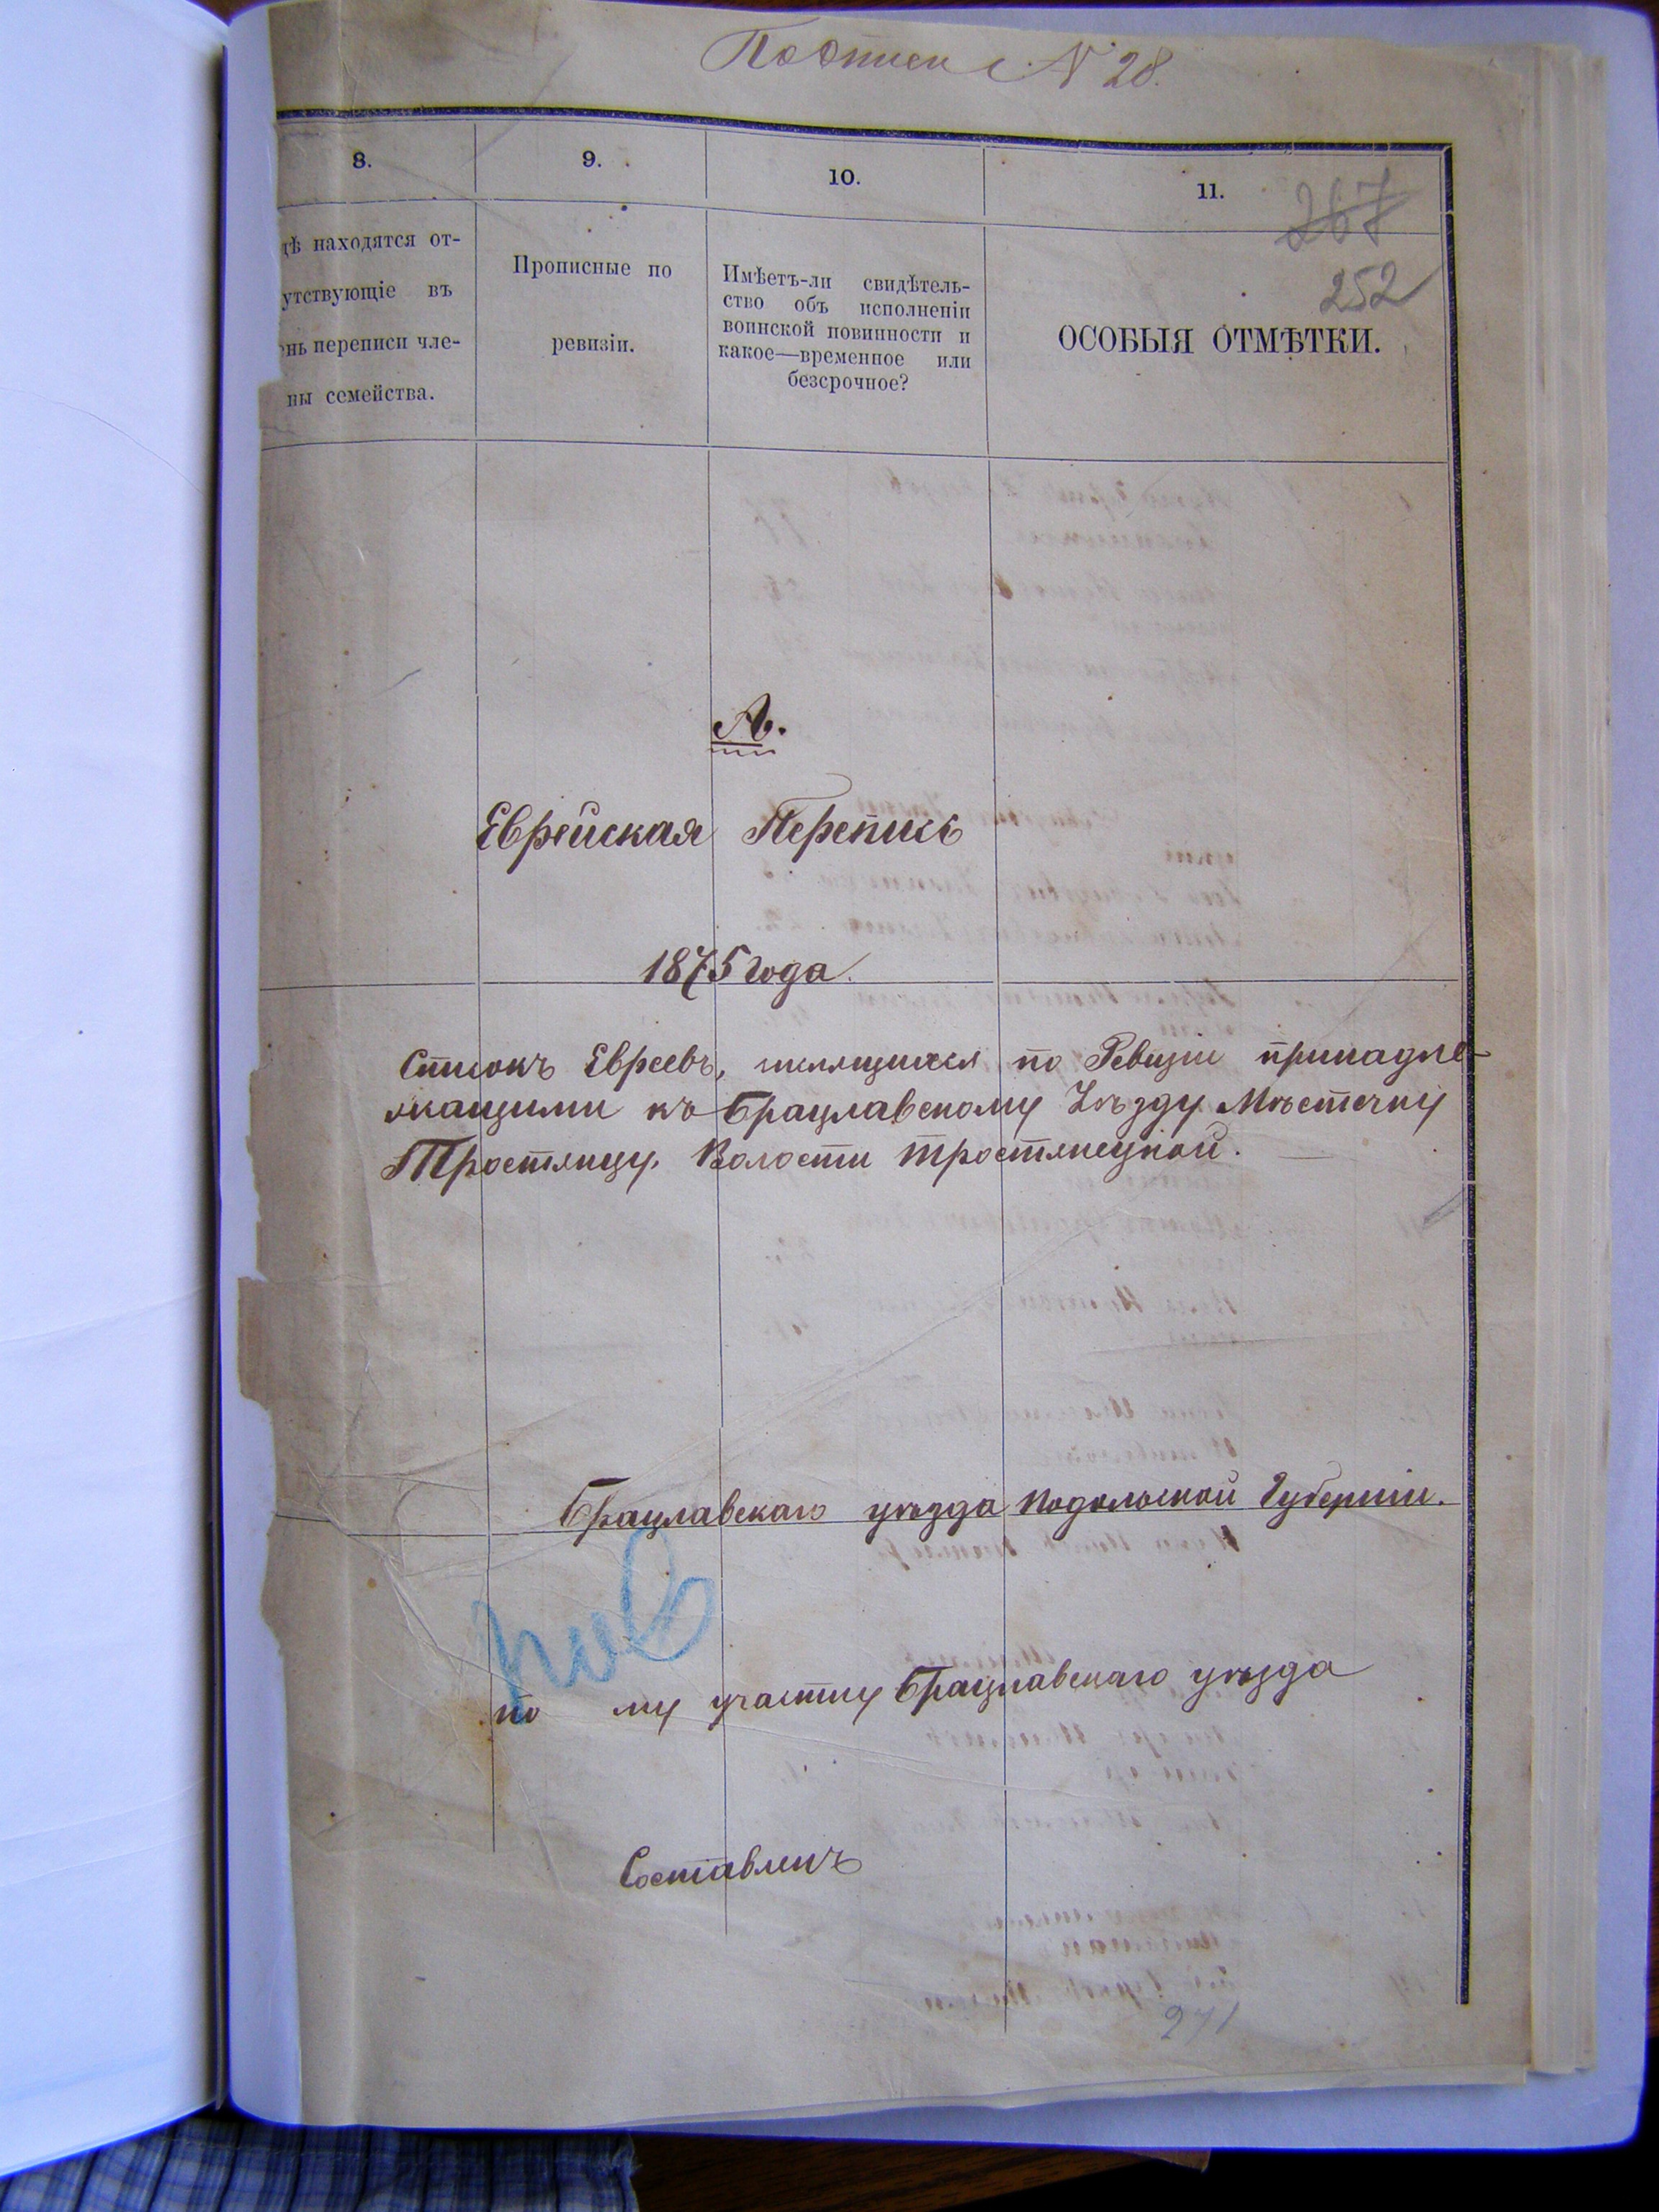 N 28.
8.
9.
10.
11.
267
252
дѣ находятся от-
утствующіе въ
ень переписи чле-
ны семейства.
Прописные по
ревизіи.
Имѣетъ-ли свидѣтель-
ство объ исполненіи
воинской повинности и
какое—временное или
безсрочное?
ОСОБЫЯ ОТМѢТКИ.
А.
Еврейская Перепись
1875 года.
Списокъ Евреевъ, числящихся по Ревизіи принадле-
жащими къ Брацлавскому Уѣзду Мѣстечку
Тростянцу, Волости Тростянецкой.
Брацлавскаго уѣзда Подольской Губерніи.
по му участку Брацлавскаго уѣзда
Составленъ
271